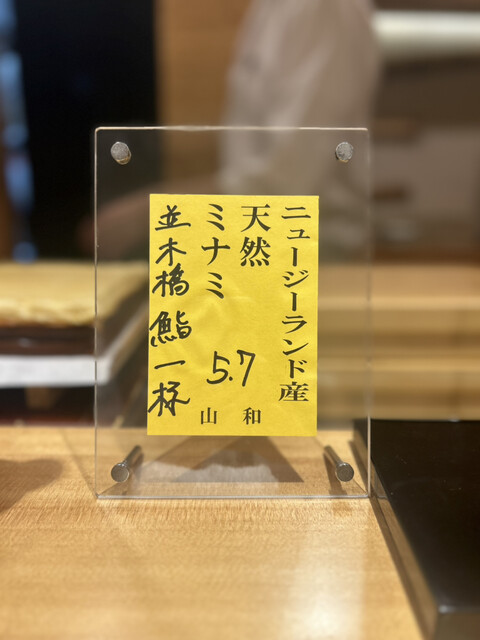 ニュージーランド産
天然
ミナミ
5.7
山和
並木橋 鮨一杯